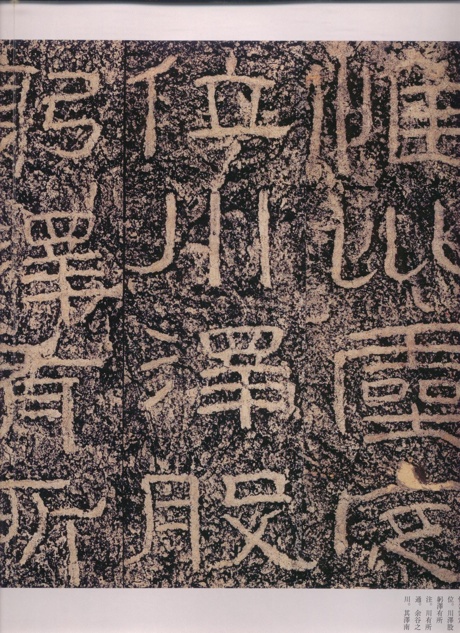 惟巛靈定
位川澤股
躬澤有所
位。川澤股
躬澤有所
注。川有所
通。余谷之
川。其澤南